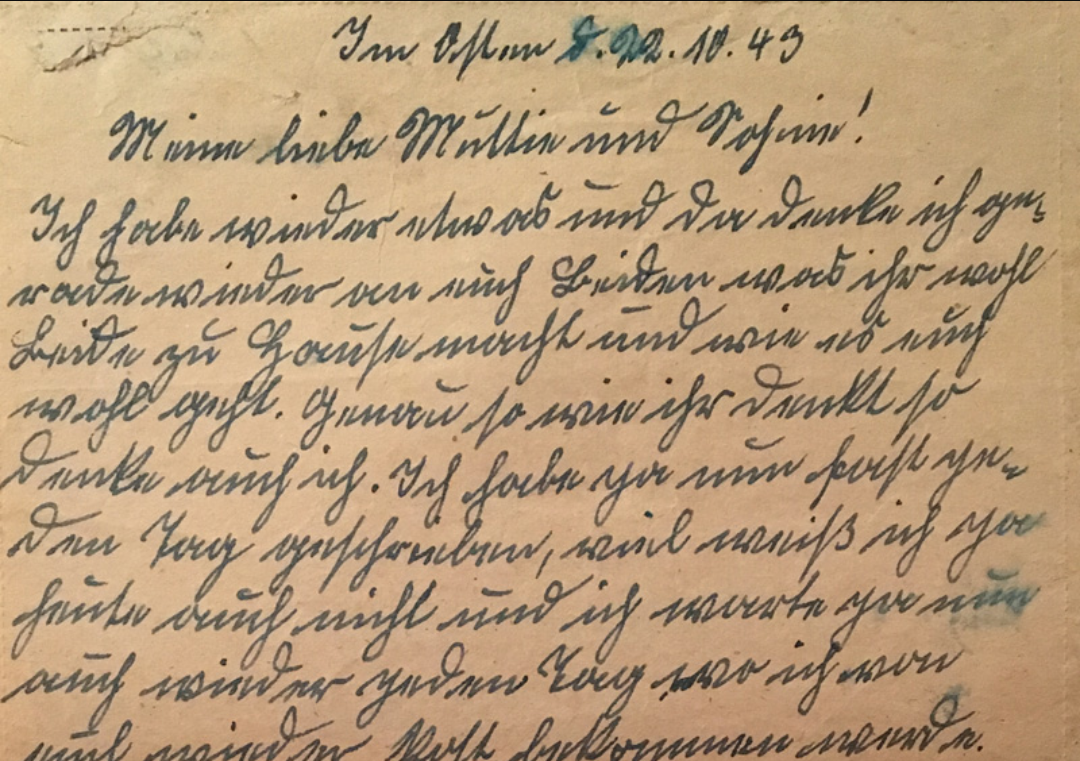 Im Osten d. 22.10.43
Meine liebe Muttie und Söhnie!
Ich habe wieder etwas und da denke ich ge-
rade wieder an euch Beiden was ihr wohl
Beide zu Hause macht und wie es euch
wohl geht. Genau so wie ihr denkt so
denke auch ich. Ich habe ja nun fast je-
den Tag geschrieben, viel weiß ich ja
heute auch nicht und ich warte ja nun
auch wieder jeden Tag wo ich von
euch wieder Post bekommen werde.